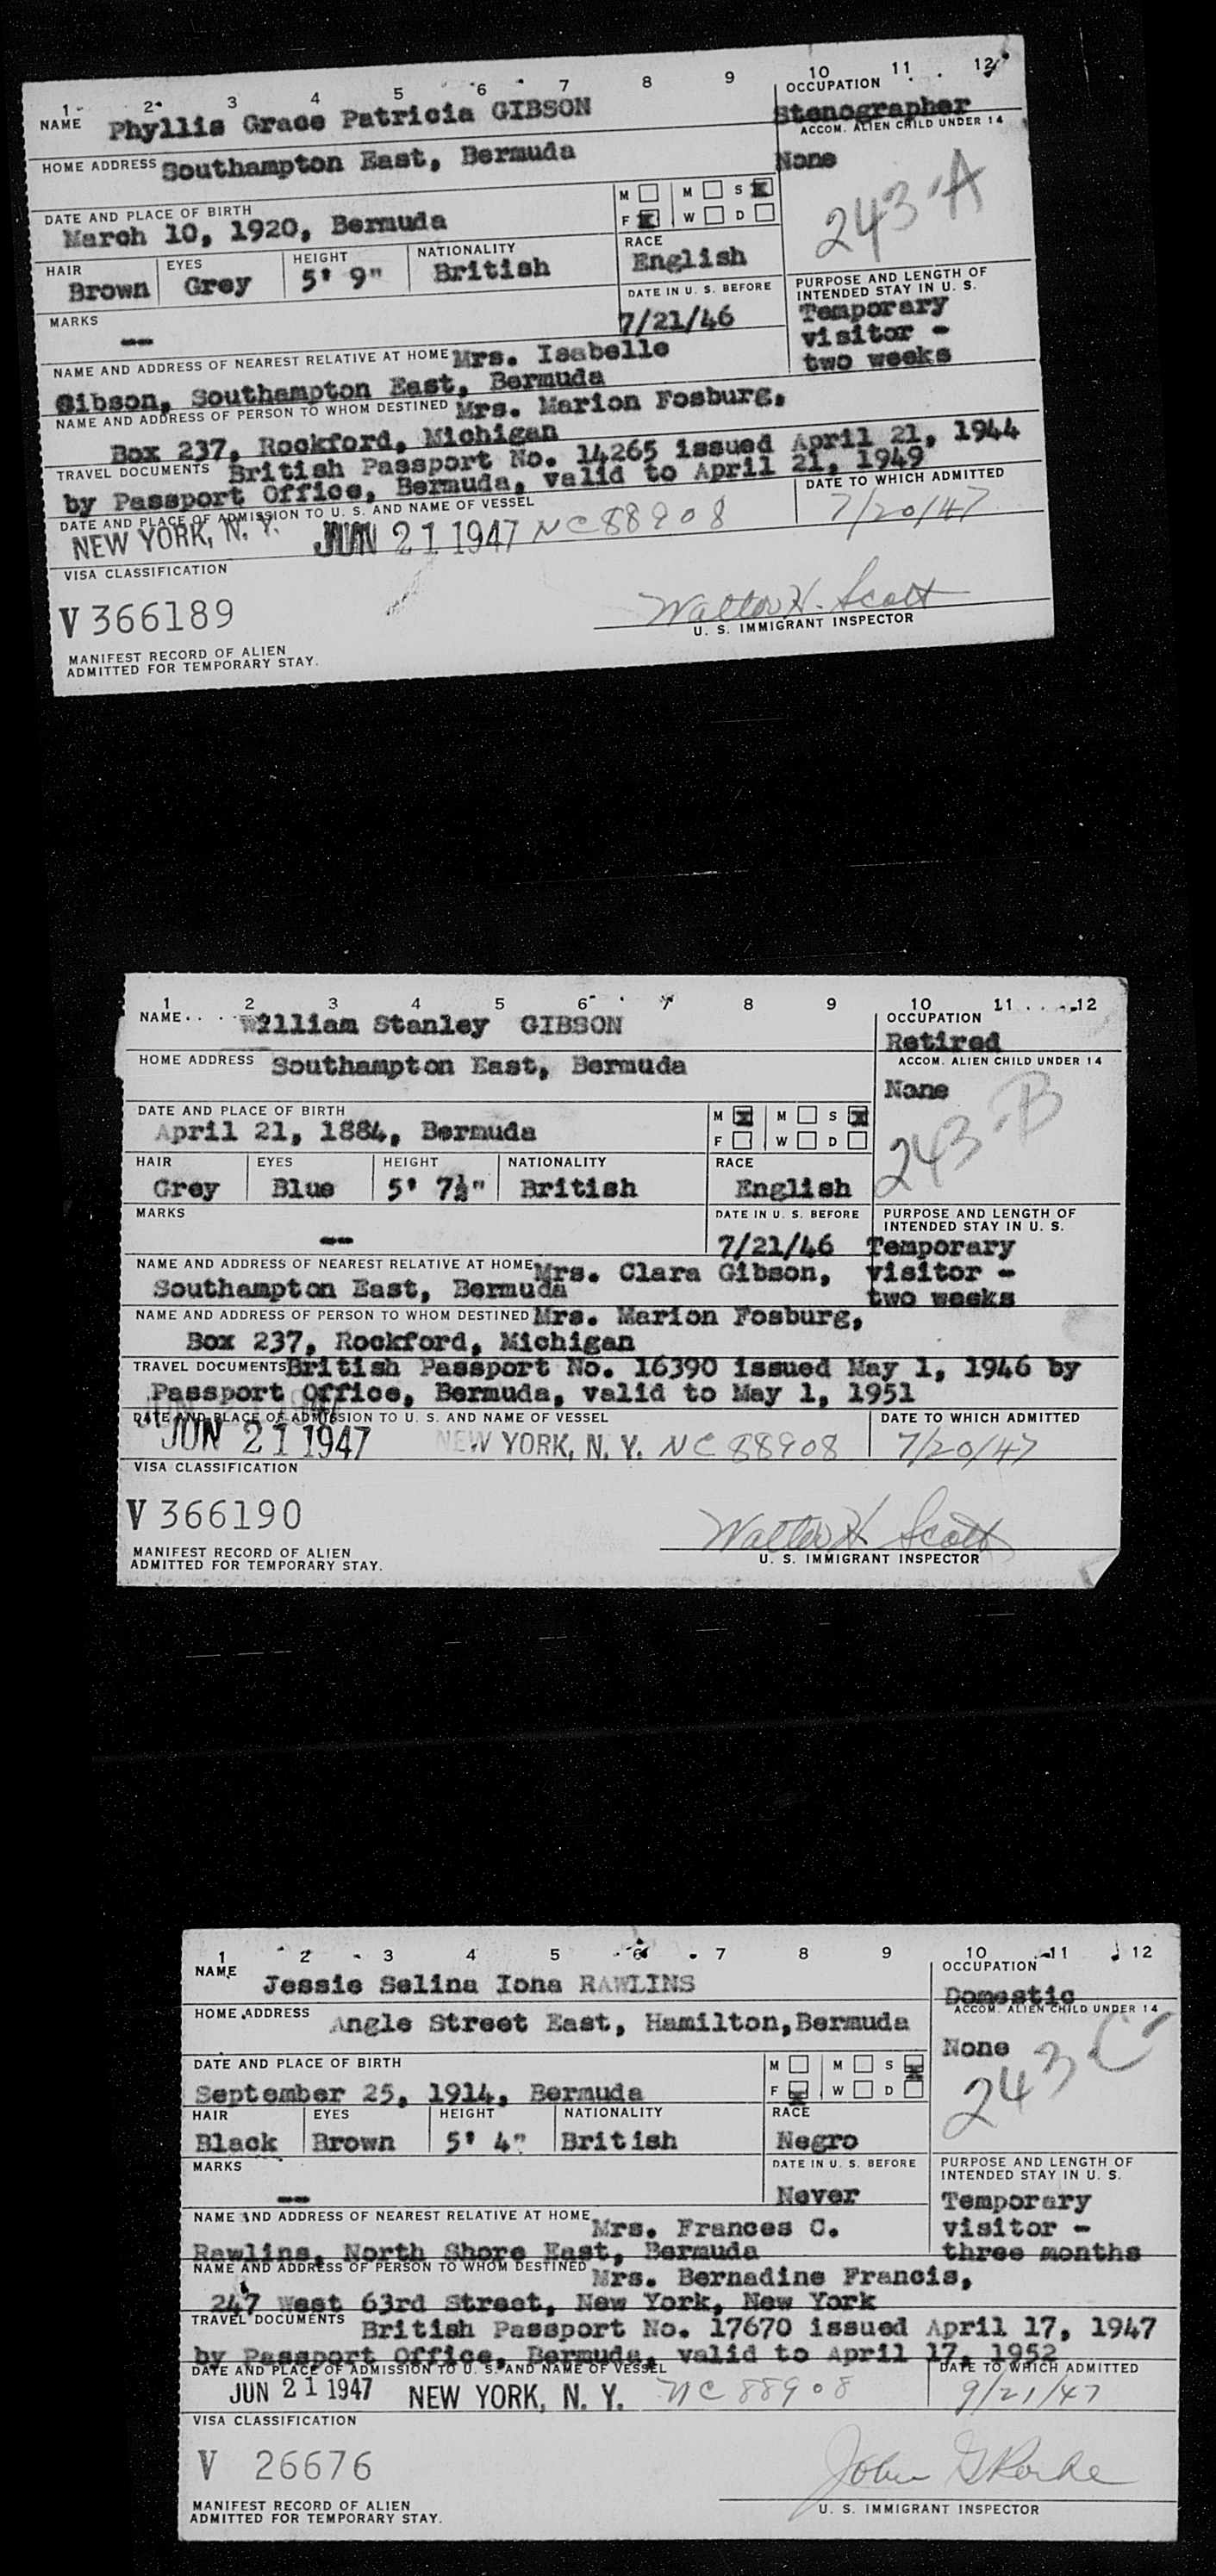 1 2 3 4 5 6 7 8 9 10 11 12
NAME Phyllis Grace Patricia GIBSON
OCCUPATION
Stenographer
HOME ADDRESS Southampton East, Bermuda
ACCOM. ALIEN CHILD UNDER 14
None
243-A
DATE AND PLACE OF BIRTH
March 10, 1920, Bermuda
M M S X
F X W D
HAIR EYES HEIGHT NATIONALITY RACE
Brown Grey 5' 9" British English
MARKS
--
DATE IN U. S. BEFORE
7/21/46
PURPOSE AND LENGTH OF
INTENDED STAY IN U. S.
Temporary
visitor -
two weeks
NAME AND ADDRESS OF NEAREST RELATIVE AT HOME Mrs. Isabelle
Gibson, Southampton East, Bermuda
NAME AND ADDRESS OF PERSON TO WHOM DESTINED Mrs. Marion Fosburg,
Box 237, Rockford, Michigan
TRAVEL DOCUMENTS British Passport No. 14265 issued April 21, 1944
by Passport Office, Bermuda, valid to April 21, 1949
DATE AND PLACE OF ADMISSION TO U. S. AND NAME OF VESSEL
NEW YORK, N. Y. JUN 21 1947 NC88908
DATE TO WHICH ADMITTED
7/20/47
VISA CLASSIFICATION
V 366189
Walter H. Scott
U. S. IMMIGRANT INSPECTOR
MANIFEST RECORD OF ALIEN
ADMITTED FOR TEMPORARY STAY.
1 2 3 4 5 6 7 8 9 10 11 12
NAME William Stanley GIBSON
OCCUPATION
Retired
HOME ADDRESS Southampton East, Bermuda
ACCOM. ALIEN CHILD UNDER 14
None
243-B
DATE AND PLACE OF BIRTH
April 21, 1884, Bermuda
M X M S X
F W D
HAIR EYES HEIGHT NATIONALITY RACE
Grey Blue 5' 7½" British English
MARKS
--
DATE IN U. S. BEFORE
7/21/46
PURPOSE AND LENGTH OF
INTENDED STAY IN U. S.
Temporary
visitor -
two weeks
NAME AND ADDRESS OF NEAREST RELATIVE AT HOME Mrs. Clara Gibson,
Southampton East, Bermuda
NAME AND ADDRESS OF PERSON TO WHOM DESTINED Mrs. Marion Fosburg,
Box 237, Rockford, Michigan
TRAVEL DOCUMENTS British Passport No. 16390 issued May 1, 1946 by
Passport Office, Bermuda, valid to May 1, 1951
DATE AND PLACE OF ADMISSION TO U. S. AND NAME OF VESSEL
JUN 21 1947 NEW YORK, N. Y. NC 88908
DATE TO WHICH ADMITTED
7/20/47
VISA CLASSIFICATION
V 366190
Walter H Scott
U. S. IMMIGRANT INSPECTOR
MANIFEST RECORD OF ALIEN
ADMITTED FOR TEMPORARY STAY.
1 2 3 4 5 6 7 8 9 10 11 12
NAME Jessie Selina Iona RAWLINS
OCCUPATION
Domestic
HOME ADDRESS Angle Street East, Hamilton, Bermuda
ACCOM. ALIEN CHILD UNDER 14
None
243 C
DATE AND PLACE OF BIRTH
September 25, 1914, Bermuda
M M S X
F X W D
HAIR EYES HEIGHT NATIONALITY RACE
Black Brown 5' 4" British Negro
MARKS
--
DATE IN U. S. BEFORE
Never
PURPOSE AND LENGTH OF
INTENDED STAY IN U. S.
Temporary
visitor -
three months
NAME AND ADDRESS OF NEAREST RELATIVE AT HOME Mrs. Frances C.
Rawlins, North Shore East, Bermuda
NAME AND ADDRESS OF PERSON TO WHOM DESTINED Mrs. Bernadine Francis,
247 West 63rd Street, New York, New York
TRAVEL DOCUMENTS British Passport No. 17670 issued April 17, 1947
by Passport Office, Bermuda, valid to April 17, 1952
DATE AND PLACE OF ADMISSION TO U. S. AND NAME OF VESSEL
JUN 21 1947 NEW YORK, N. Y. NC 88908
DATE TO WHICH ADMITTED
9/21/47
VISA CLASSIFICATION
V 26676
John
U. S. IMMIGRANT INSPECTOR
MANIFEST RECORD OF ALIEN
ADMITTED FOR TEMPORARY STAY.